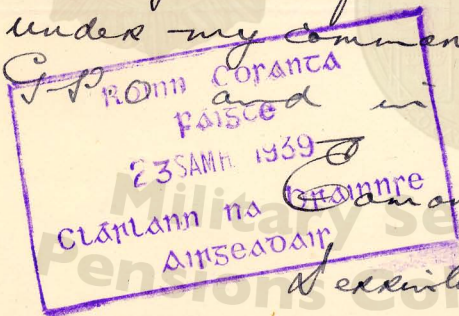 under my comman
G.P.O. and in
ROINN COSANTA
PÁIGTE
23 SAMH 1939
CLÁRLANN NA BRAINNRE
AIRGEADAIR
Eamon
Derrinl
Military Se
Pensions Col